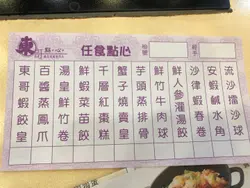 東
點·心
任食點心
流沙擂沙球
安蝦鹹水角
沙律蝦春卷
鮮人參灌湯餃
鮮竹牛肉球
芋頭蒸排骨
蟹子燒賣皇
千層紅棗糕
鮮蝦菜苗餃
湯皇鮮竹卷
百醬蒸鳳爪
東哥蝦餃皇